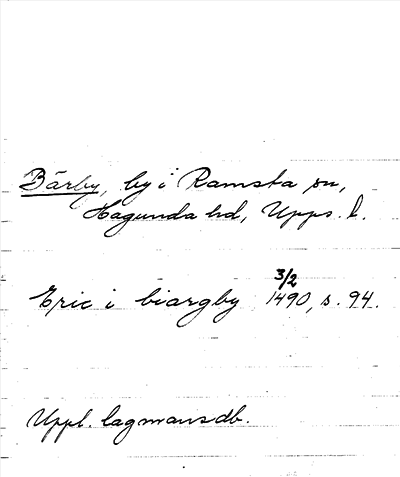 Bärby, by i Ramsta sn,
Hagunda hd, Upps. l.
3/2
Eric i biargby 1490, s. 94.
Uppl. lagmansdb.